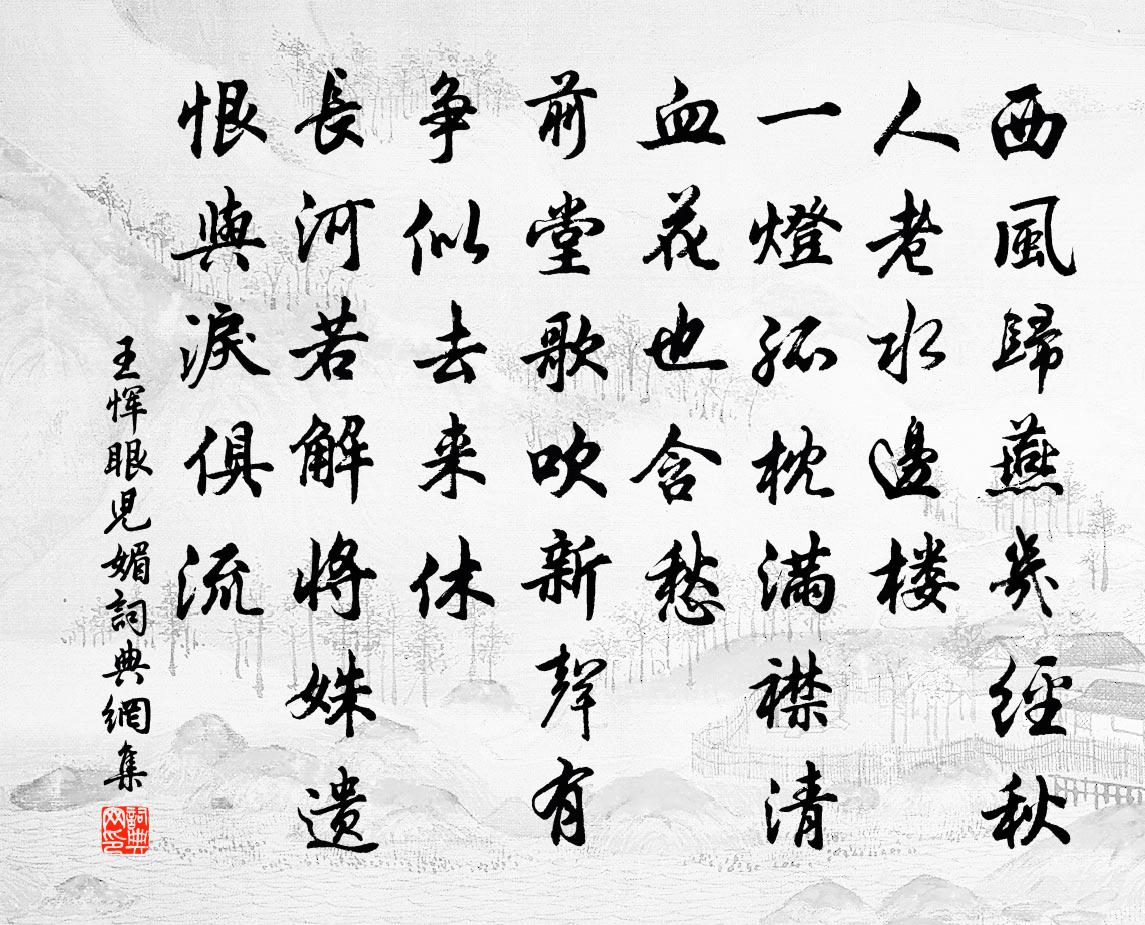 西風歸燕幾經秋
人老水邊楼
一燈孤枕滿襟清
血花也含愁
前堂歌吹新聲有
争似去来休
長河若解將姝遗
恨與淚俱流
王恽眼児媚詞典網集
詞典网印